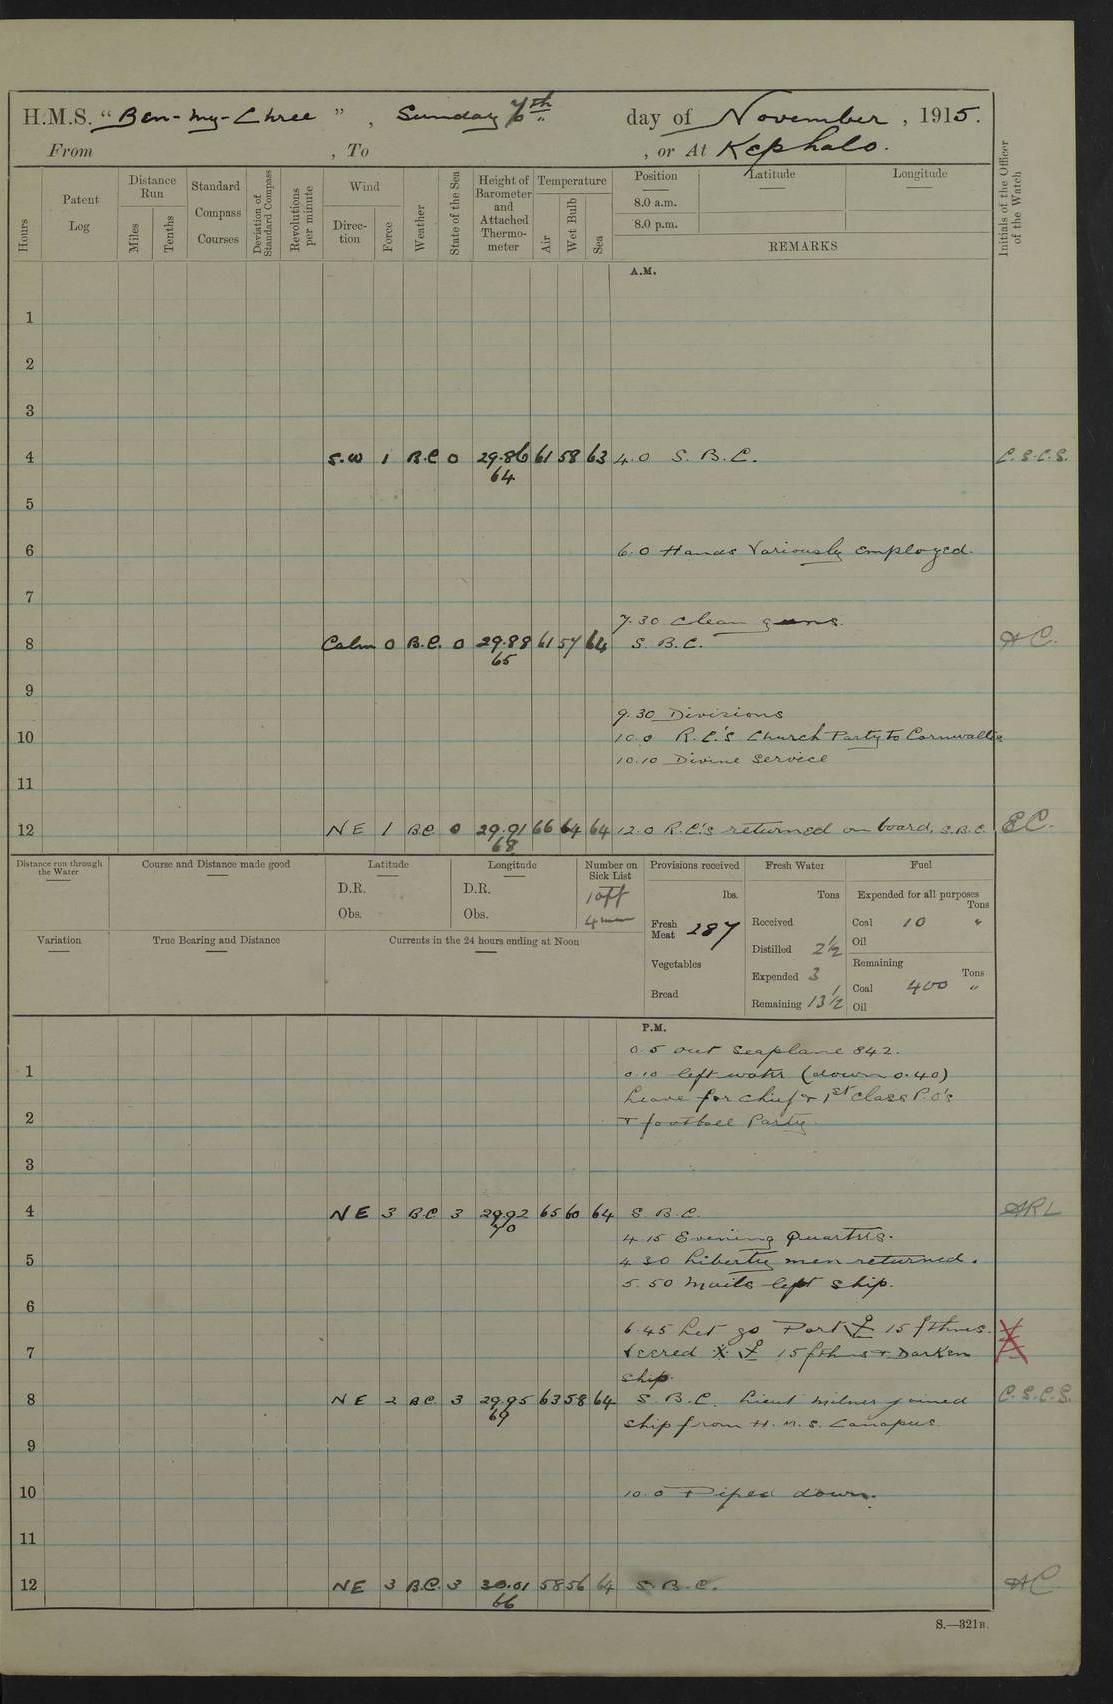 H.M.S. "Ben-my-Chree", Sunday 7th day of November, 1915.
From , To , or At Kephalo.
Hours
Patent Log
Distance Run
Miles
Tenths
Standard Compass Courses
Deviation of Standard Compass
Revolutions per minute
Wind
Direction
Force
Weather
State of the Sea
Height of Barometer and Attached Thermometer
Temperature
Air
Wet Bulb
Sea
Position
8.0 a.m.
8.0 p.m.
Latitude
Longitude
REMARKS
Initials of the Officer of the Watch
A.M.
1
2
3
4 S.W 1 B.C 0 29.86 61 58 63 4.0 S. B. C. C.S.C.S.
64
5
6 6.0 Hands Variously employed.
7
7.30 Clean guns.
8 Calm 0 B.C. 0 29.88 61 57 64 S. B.C. HC.
65
9
9.30 Divisions
10 10.0 R.C.'s Church Party to Cornwallis
10.10 Divine Service
11
12 NE 1 BC 0 29.91 66 64 64 12.0 R.C.'s returned on board. S.B.C. EC.
68
Distance run through the Water
Course and Distance made good
Latitude
D.R.
Obs.
Longitude
D.R.
Obs.
Number on Sick List
1 off
4 men
Variation
True Bearing and Distance
Currents in the 24 hours ending at Noon
Provisions received
lbs.
Fresh Meat 287
Vegetables
Bread
Fresh Water
Tons
Received
Distilled 2½
Expended 3
Remaining 13½
Fuel
Expended for all purposes
Tons
Coal 10 "
Oil
Remaining
Tons
Coal 400 "
Oil
P.M.
0.5 out Seaplane 842.
1 0.10 left water (down 0.40)
Leave for chief & 1st Class P.O's
2 & football Party.
3
4 NE 3 B.C 3 29.92 65 60 64 S. B.C. ARL
70
4 15 Evening Quarters.
5 4 30 Liberty men returned.
5.50 Mails left ship.
6
6.45 Let go Port ⚓ 15 fthms.
7 Veered 15 fthms & Darken
ship.
8 NE 2 BC. 3 29.95 63 58 64 S. B.C. Lieut Milner joined C.S.C.S.
69
ship from H.M.S. Canopus
9
10 10.0 Piped down.
11
12 NE 3 B.C. 3 30.01 58 56 64 S. B.C. HC
66
S.—321B.